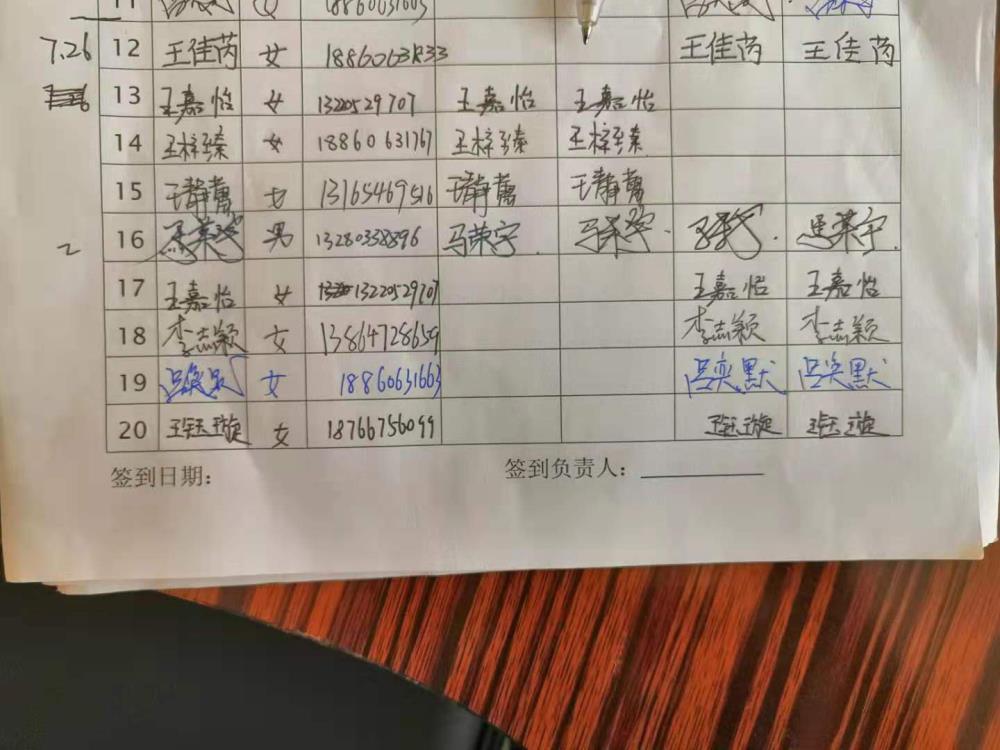 11 女 18860631663
7.26 12 王佳芮 女 王佳芮 王佳芮
13 王嘉怡 女 1320529707 王嘉怡 王嘉怡
14 王梓臻 女 18860631767 王梓臻 王梓臻
15 王静萬 女 13165469516 王静萬 王静萬
2 16 马荣宇 男 13280338896 马荣宇 马荣宇 马荣宇
17 王嘉怡 女 13220529707 王嘉怡 王嘉怡
18 李志颖 女 13864728659 李志颖 李志颖
19 女 18860631663 吕奕默 吕奕默
20 王钰璇 女 18766756099 王钰璇 王钰璇
签到日期： 签到负责人：